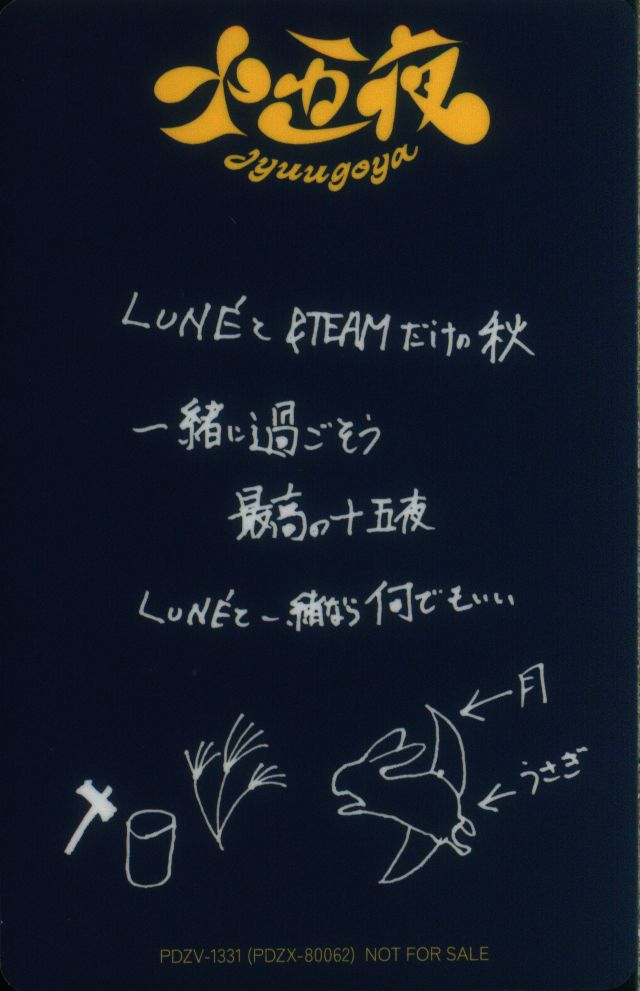 十五夜
Jyuugoya
LUNÉと &TEAMだけの秋
一緒に過ごそう
最高の十五夜
LUNÉと一緒なら何でもいい
←月
←うさぎ
PDZV-1331 (PDZX-80062) NOT FOR SALE